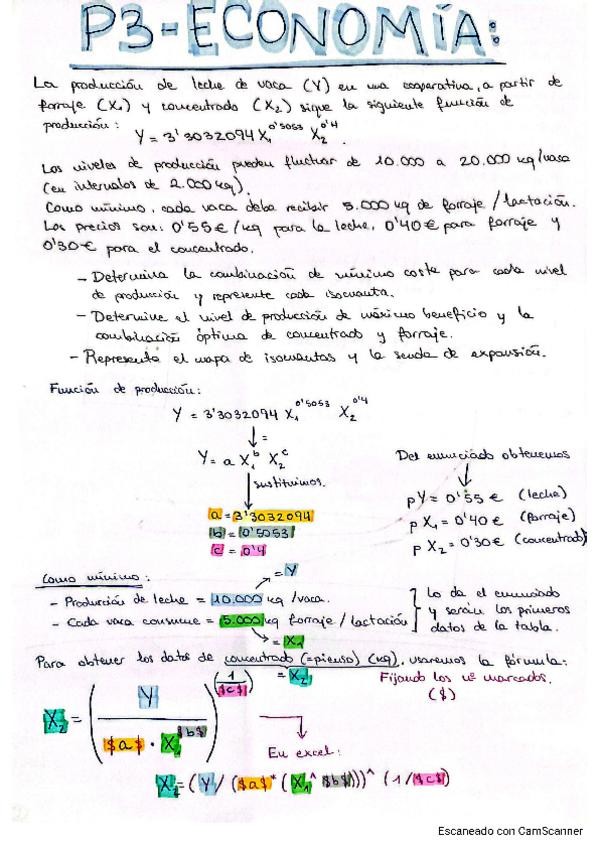 P3-ECONOMÍA:
La producción de leche de vaca (Y) en una cooperativa, a partir de
forraje (X1) y concentrado (X2) sigue la siguiente función de
producción: Y = 3'3032094 X1^0'5053 X2^0'4.
Los niveles de producción pueden fluctuar de 10.000 a 20.000 kg/vaca
(en intervalos de 2.000 kg).
Como mínimo, cada vaca debe recibir 5.000 kg de forraje / lactación.
Los precios son: 0'55 €/kg para la leche, 0'40 € para forraje y
0'30 € para el concentrado.
- Determina la combinación de mínimo coste para cada nivel
de producción y represente cada isocuanta.
- Determine el nivel de producción de máximo beneficio y la
combinación óptima de concentrado y forraje.
- Representa el mapa de isocuantas y la senda de expansión.
Función de producción:
Y = 3'3032094 X1^0'5053 X2^0'4
=
Y = a X1^b X2^c
sustituimos.
a = 3'3032094
b = 0'5053
c = 0'4
Del enunciado obtenemos
pY = 0'55 € (leche)
pX1 = 0'40 € (forraje)
pX2 = 0'30 € (concentrado)
Como mínimo:
= Y
- Producción de leche = 10.000 kg /vaca.
- Cada vaca consume = 5.000 kg forraje / lactación
= X1
Lo da el enunciado
y serán los primeros
datos de la tabla.
Para obtener los datos de concentrado (=pienso) (kg), usaremos la fórmula:
= X2
Fijando los nº marcados.
($)
X2 = (Y / ($a$ · X1^$b$))^(1/$c$)
En excel:
X2 = (Y / ($a$ * (X1^ $b$)))^ (1/$c$)
Escaneado con CamScanner